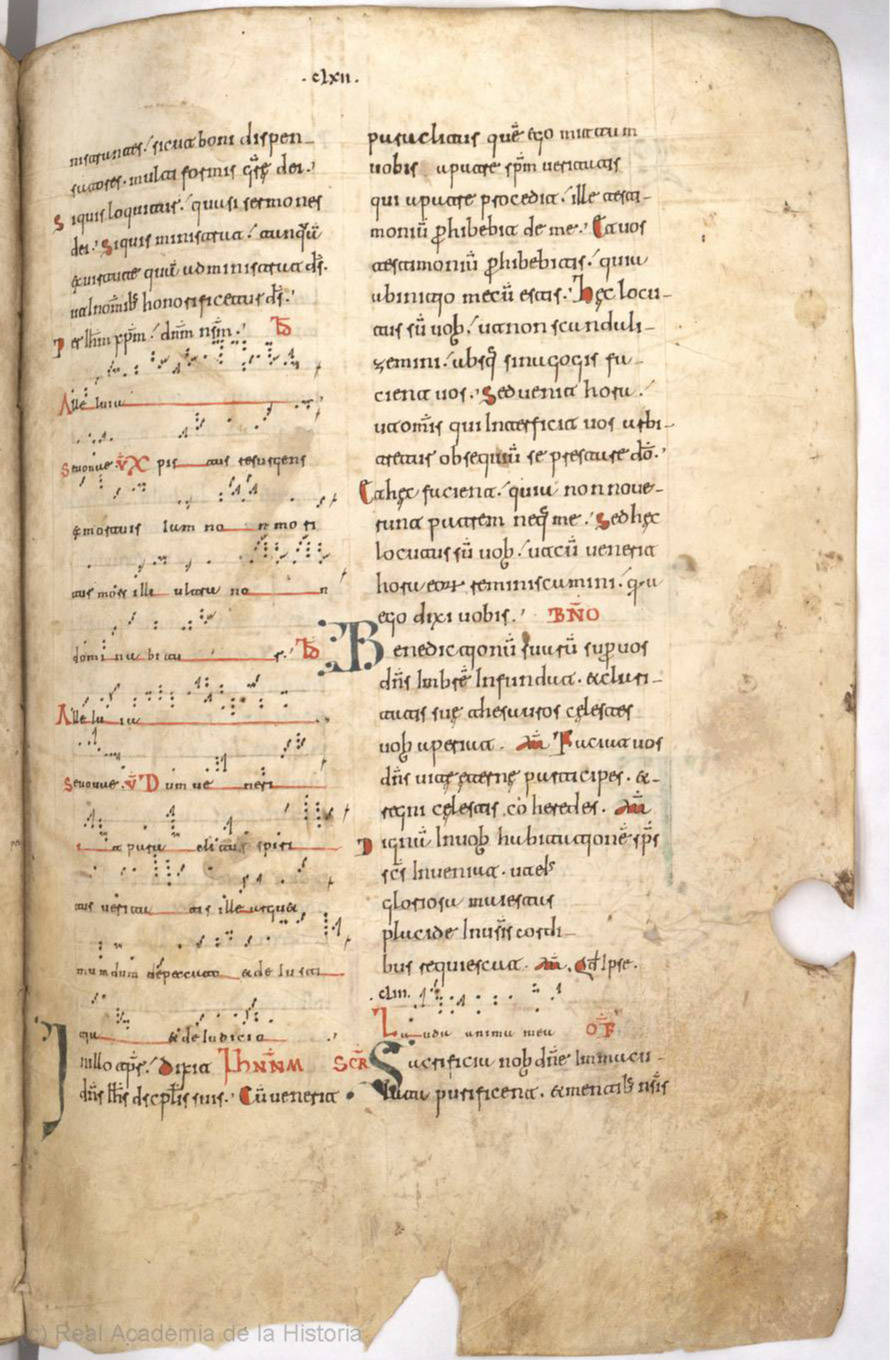 ·clxII·
nistrantes / sicut boni dispen-
satores· multiformis grẽ dei·
Siquis loquitur / quasi sermones
dei· Siquis ministrat / tanquã
ex uirtute quã administrat d̅s·
ut In om̅ib; honorificetur d̅s·
Per Ih̅m xp̅m / dn̅m nr̅m·
Alleluia
Seuouae V̅ Xpis tus resurgens
ex mortuis Iam no n mori
tur mors illi ultra no n
domi na bi tur
Alle lu ia
Seuouae V̅ Dum ue neri
t para clitus spiri
tus uerita tis ille arguet
mundum de peccato et de Iusti
tia et de Iudicio
In illo tp̅r· Dixit IhNN̅M SCR̅
dn̅s Ih̅s discplis suis· Cũ uenerit
paraclitus quẽ ego mittam
uobis a patre sp̅m ueritatis
qui a patre procedit / ille testi-
moniũ phibebit de me· Et uos
testimoniũ phibebitis / quia
ab initio mecũ estis· Hęc locu-
tus sũ uob / ut non scandali-
zemini / absq; sinagogis fa-
cient uos· Sed uenit hora /
ut om̅is qui Interficit uos arbi-
tretur obsequiũ se prestare dō·
Et hęc facient / quia non noue-
runt patrem neq; me· Sed hęc
locutus sũ uob / ut cũ uenerit
hora eorum reminiscamini· quia
ego dixi uobis· BÑO
Benedictionũ suarũ supuos
dn̅s Imbrẽ Infundat· et clari-
tatis suę thesauros cęlestes
uob aperiat· am̅ Faciat uos
dn̅s uitę eternę participes· et
regni cęlestis, coheredes· am̅
Dignũ In uob habitationẽ sp̅s
sc̅s Inueniat· ut eIs
gloriosa maiestas
placide In ur̅is cordi-
bus requiescat· am̅· qd̅ Ipse·
·clIII·
Lauda anima mea OF̅
Sacrificia nob dn̅e Immacu-
lata purificent· et mentib; nr̅is
(c) Real Academia de la Historia